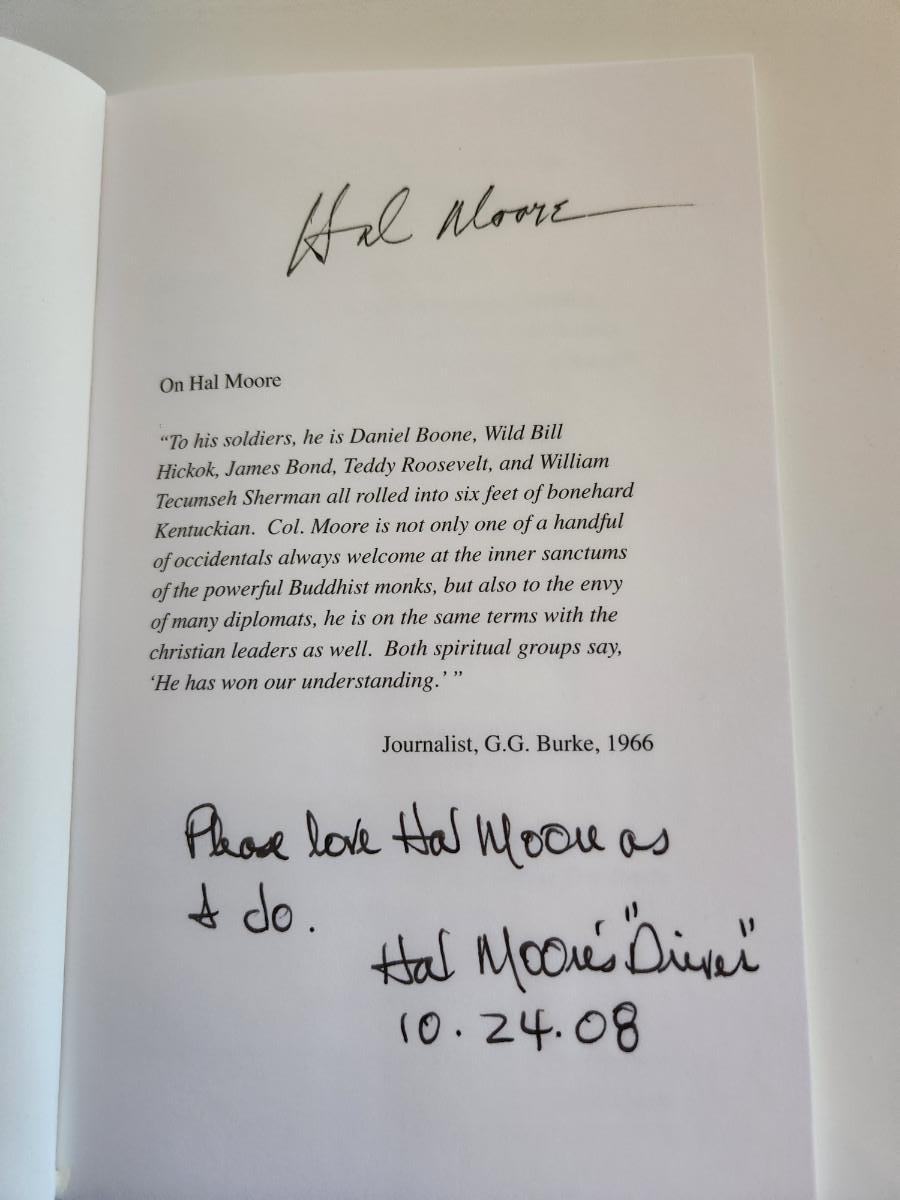 Hal Moore
On Hal Moore
“To his soldiers, he is Daniel Boone, Wild Bill
Hickok, James Bond, Teddy Roosevelt, and William
Tecumseh Sherman all rolled into six feet of bonehard
Kentuckian. Col. Moore is not only one of a handful
of occidentals always welcome at the inner sanctums
of the powerful Buddhist monks, but also to the envy
of many diplomats, he is on the same terms with the
christian leaders as well. Both spiritual groups say,
‘He has won our understanding.’ ”
Journalist, G.G. Burke, 1966
Please love Hal Moore as
I do.
Hal Moore's "Driver"
10.24.08